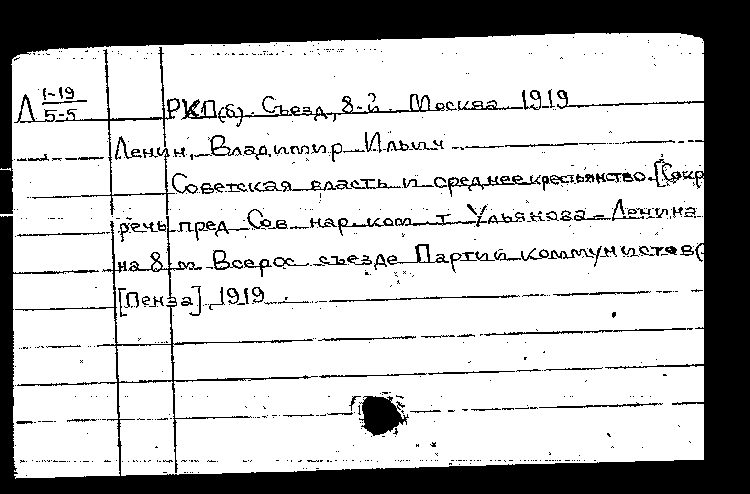 Л 1-19
5-5
РКП(б). Съезд, 8-й. Москва 1919
Ленин, Владимир Ильич
Советская власть и среднее крестьянство. [Сокр
речь пред. Сов. нар. ком. т. Ульянова-Ленина
на 8-м Всерос. съезде Партии коммунистов (
[Пенза], 1919.